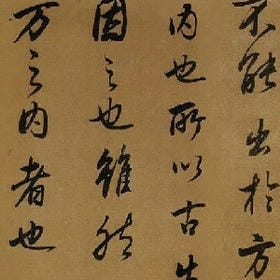 不能出於方
内也所以古
因之也雖然
方之内者也